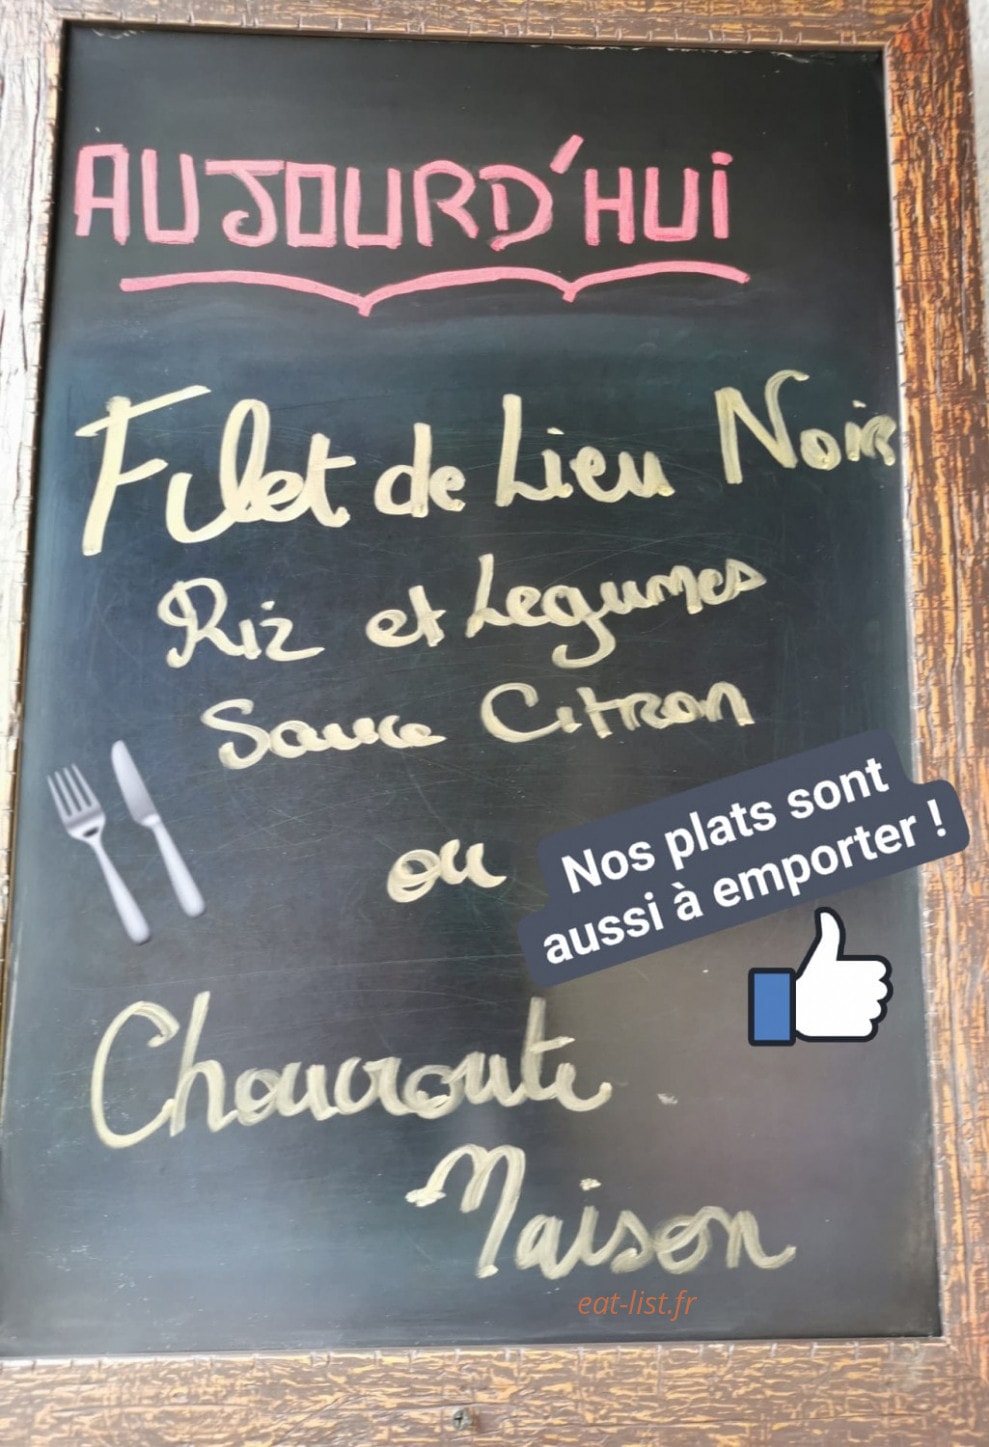 AUJOURD'HUi
Filet de Lieu Noir
Riz et Legumes
Sauce Citron
ou
Nos plats sont
aussi à emporter !
Choucroute
Maison
eat-list.fr